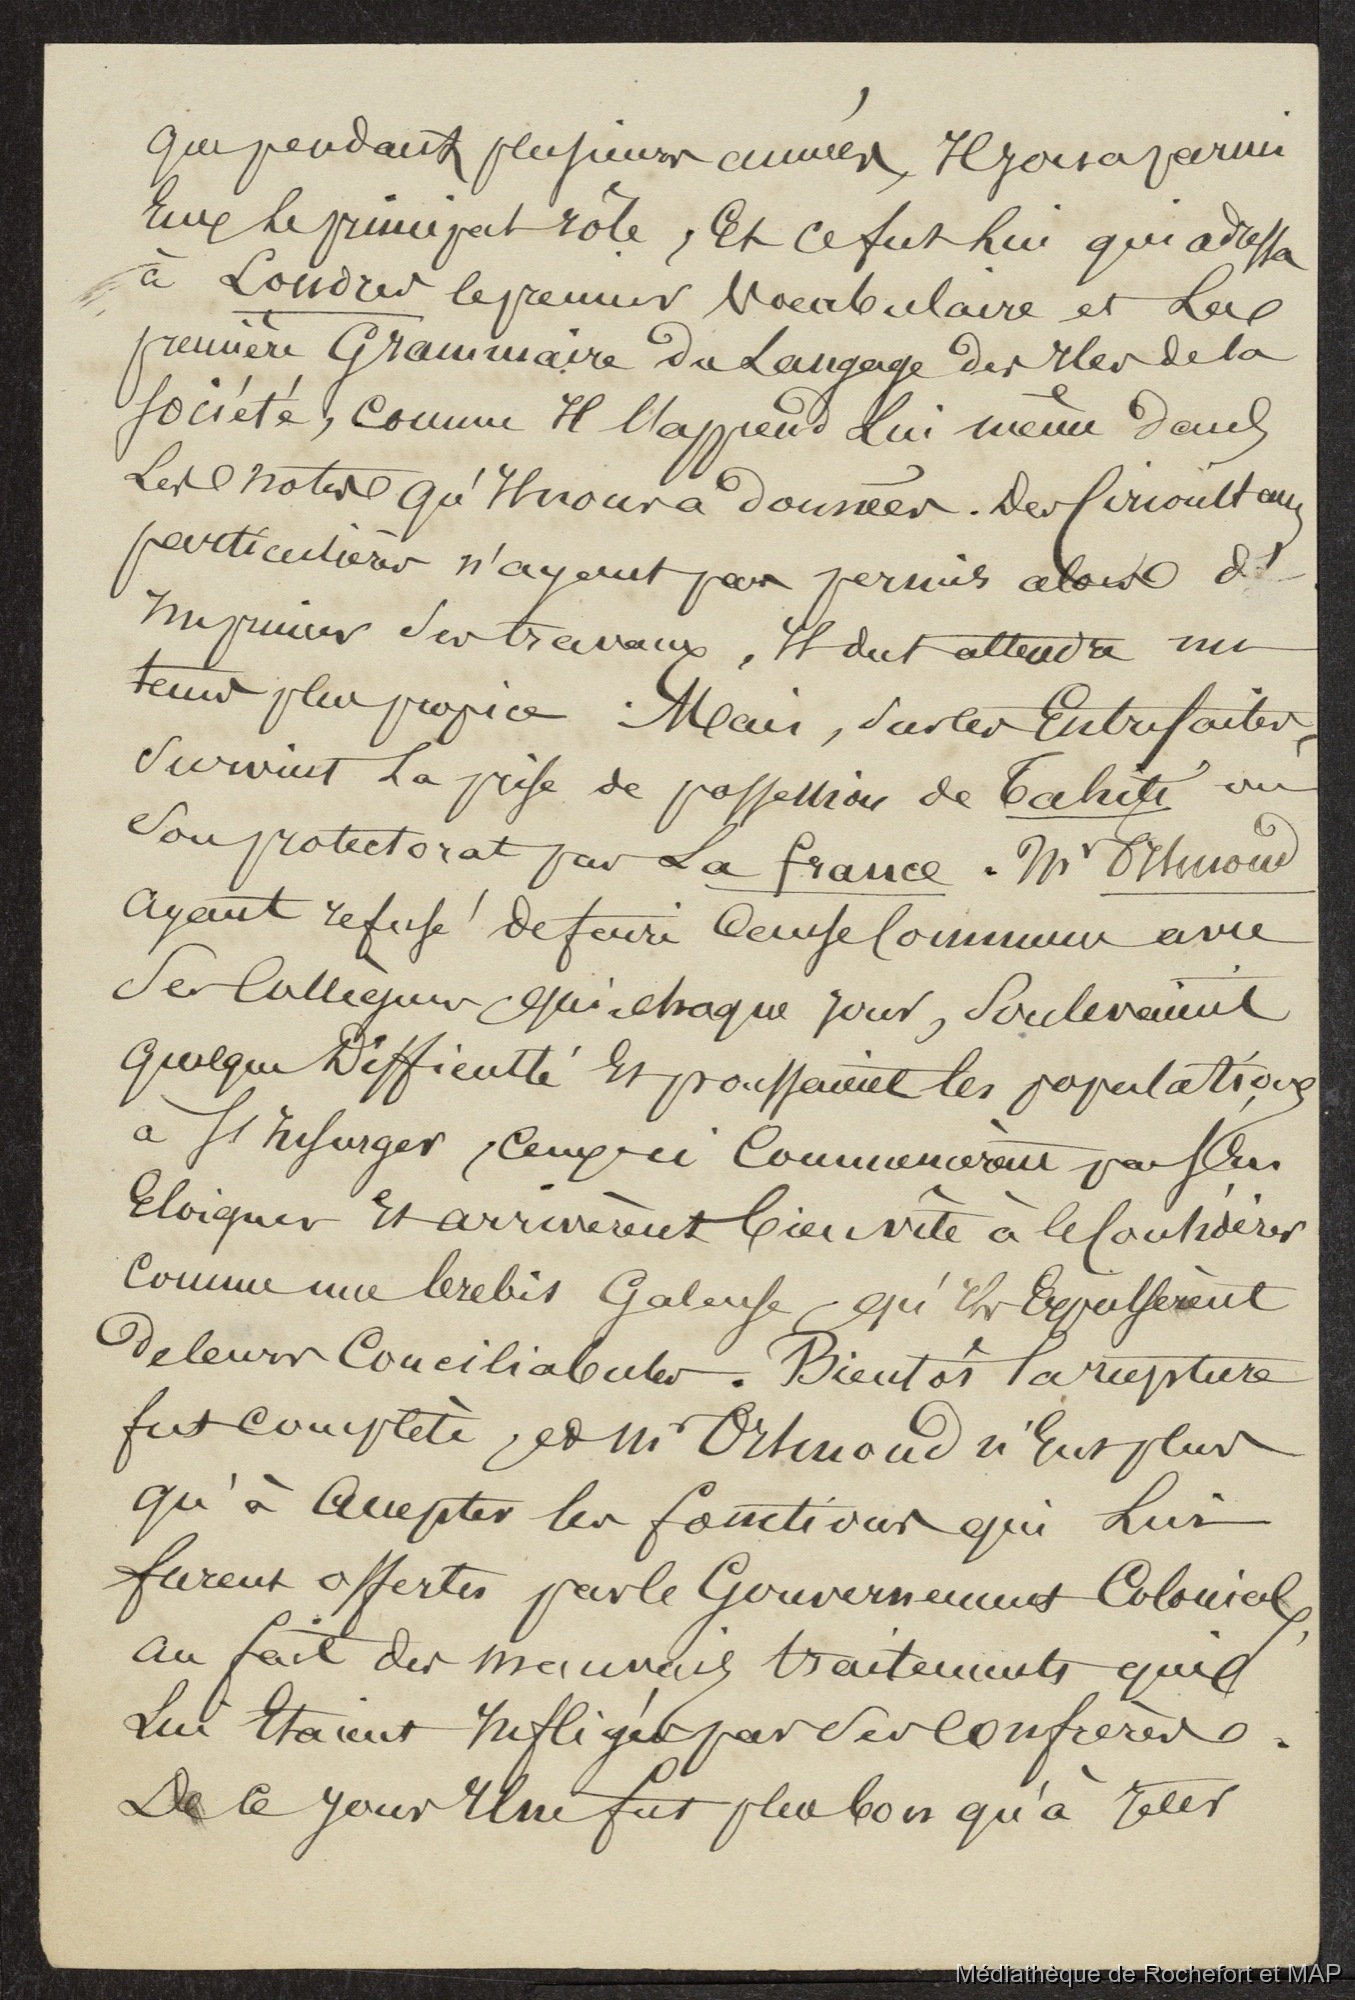 que pendant plusieurs années, Il joua parmi
Eux le principal rôle, Et ce fut lui qui adressa
à Londres le premier Vocabulaire et La
première Grammaire du Langage des Iles de la
Société, comme Il l'apprend Lui même dans
Les notes qu'Il nous a données. Des Circonstances
particulières n'ayant pas permis alors d'
Imprimer Ses travaux, Il dut attendre un
tems plus propice. Mais, Sur les Entrefaites,
Survint La prise de possession de Tahiti ou
Son protectorat par La france. Mr Orsmond
ayant refusé de faire Cause Commune avec
Ses Collègues, qui chaque jour, Soulevaient
quelque Difficulté Et poussaient les populations
à S'Insurger, Ceux-ci Commencèrent par S'En
Eloigner Et arrivèrent bien vite à le Considérer
Comme une brebis Galeuse, qu'Ils Expulsèrent
de leurs Conciliabules. Bientôt la rupture
fut complète, et Mr Orsmond n'Eut plus
qu'à accepter les fonctions qui Lui
furent offertes par le Gouvernement Colonial,
au fait des mauvais traitements qui
Lui Etaient Infligés par Ses Confrères.
De Ce jour Il ne fut plus bon qu'à jeter
Médiathèque de Rochefort et MAP